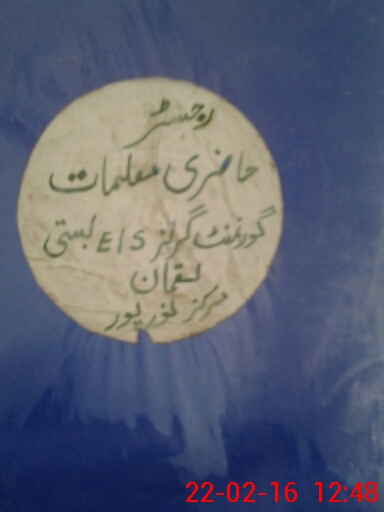 رجسٹر
حاضری معلمات
گورنمنٹ گرلز E/S بستی
لقمان
مرکز نور پور
22-02-16 12:48